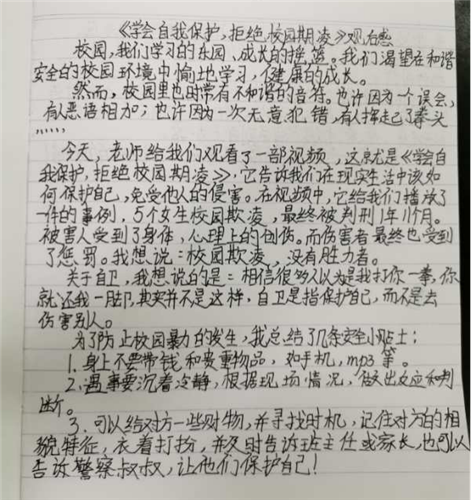 《学会自我保护,拒绝校园期凌》观后感
校园,我们学习的乐园、成长的摇篮。我们渴望在和谐
安全的校园环境中愉快地学习,健康的成长。
然而,校园里也时常有不和谐的音符。也许因为一个误会,
有人恶语相加;也许因为一次无意犯错,有人挥起了拳头
……
今天,老师给我们观看了一部视频,这就是《学会自
我保护,拒绝校园期凌》,它告诉我们在现实生活中该如
何保护自己,免受他人的侵害。在视频中,它给我们播放了
一件的事例,5个女生校园欺凌,最终被判刑1年11个月。
被害人受到了身体,心理上的创伤。而伤害者最终也受到
了惩罚。我想说:校园欺凌,没有胜力者。
关于自卫,我想说的是:相信很多人以为是我打你一拳,你
就还我一脚,其实并不是这样,自卫是指保护自己,而不是去
伤害别人。
为了防止校园暴力的发生,我总结了几条安全小贴士:
1.身上不要带钱和贵重物品,如手机,mp3等。
2.遇事要沉着冷静,根据现场情况,做出反应和判
断。
3.可以给对方一些财物,并寻找时机,记住对方的相
貌特征,衣着打扮,并及时告诉班主任或家长,也可以
告诉警察叔叔,让他们保护自己!